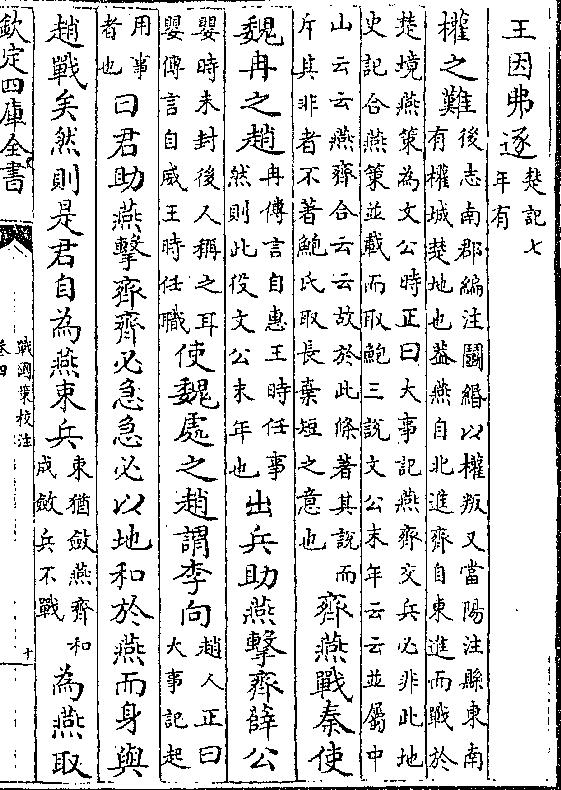 王因弗逐楚記七年有
權之難後志南郡編注鬬緡以權叛又當陽注縣東南有權城楚地也葢燕自北進齊自東進而戰於
楚境燕策為文公時正曰大事記燕齊交兵必非此地史記合燕策並載而取鮑三說文公末年云云並屬中
山云云燕齊合云云故於此條著其説而斥其非者不著鮑氏取長棄短之意也齊燕戰秦使
魏冉之趙冉傳言自惠王時任事然則此役文公末年也出兵助燕擊齊薛公
嬰時未封後人稱之耳嬰傳言自威王時任職使魏處之趙謂李向趙人正曰大事記起
用事者也曰君助燕擊齊齊必急急必以地和於燕而身與
趙戰矣然則是君自為燕東兵東猶斂燕齊和成斂兵不戰為燕取
欽定四庫全書
戰國策校注
卷四
十